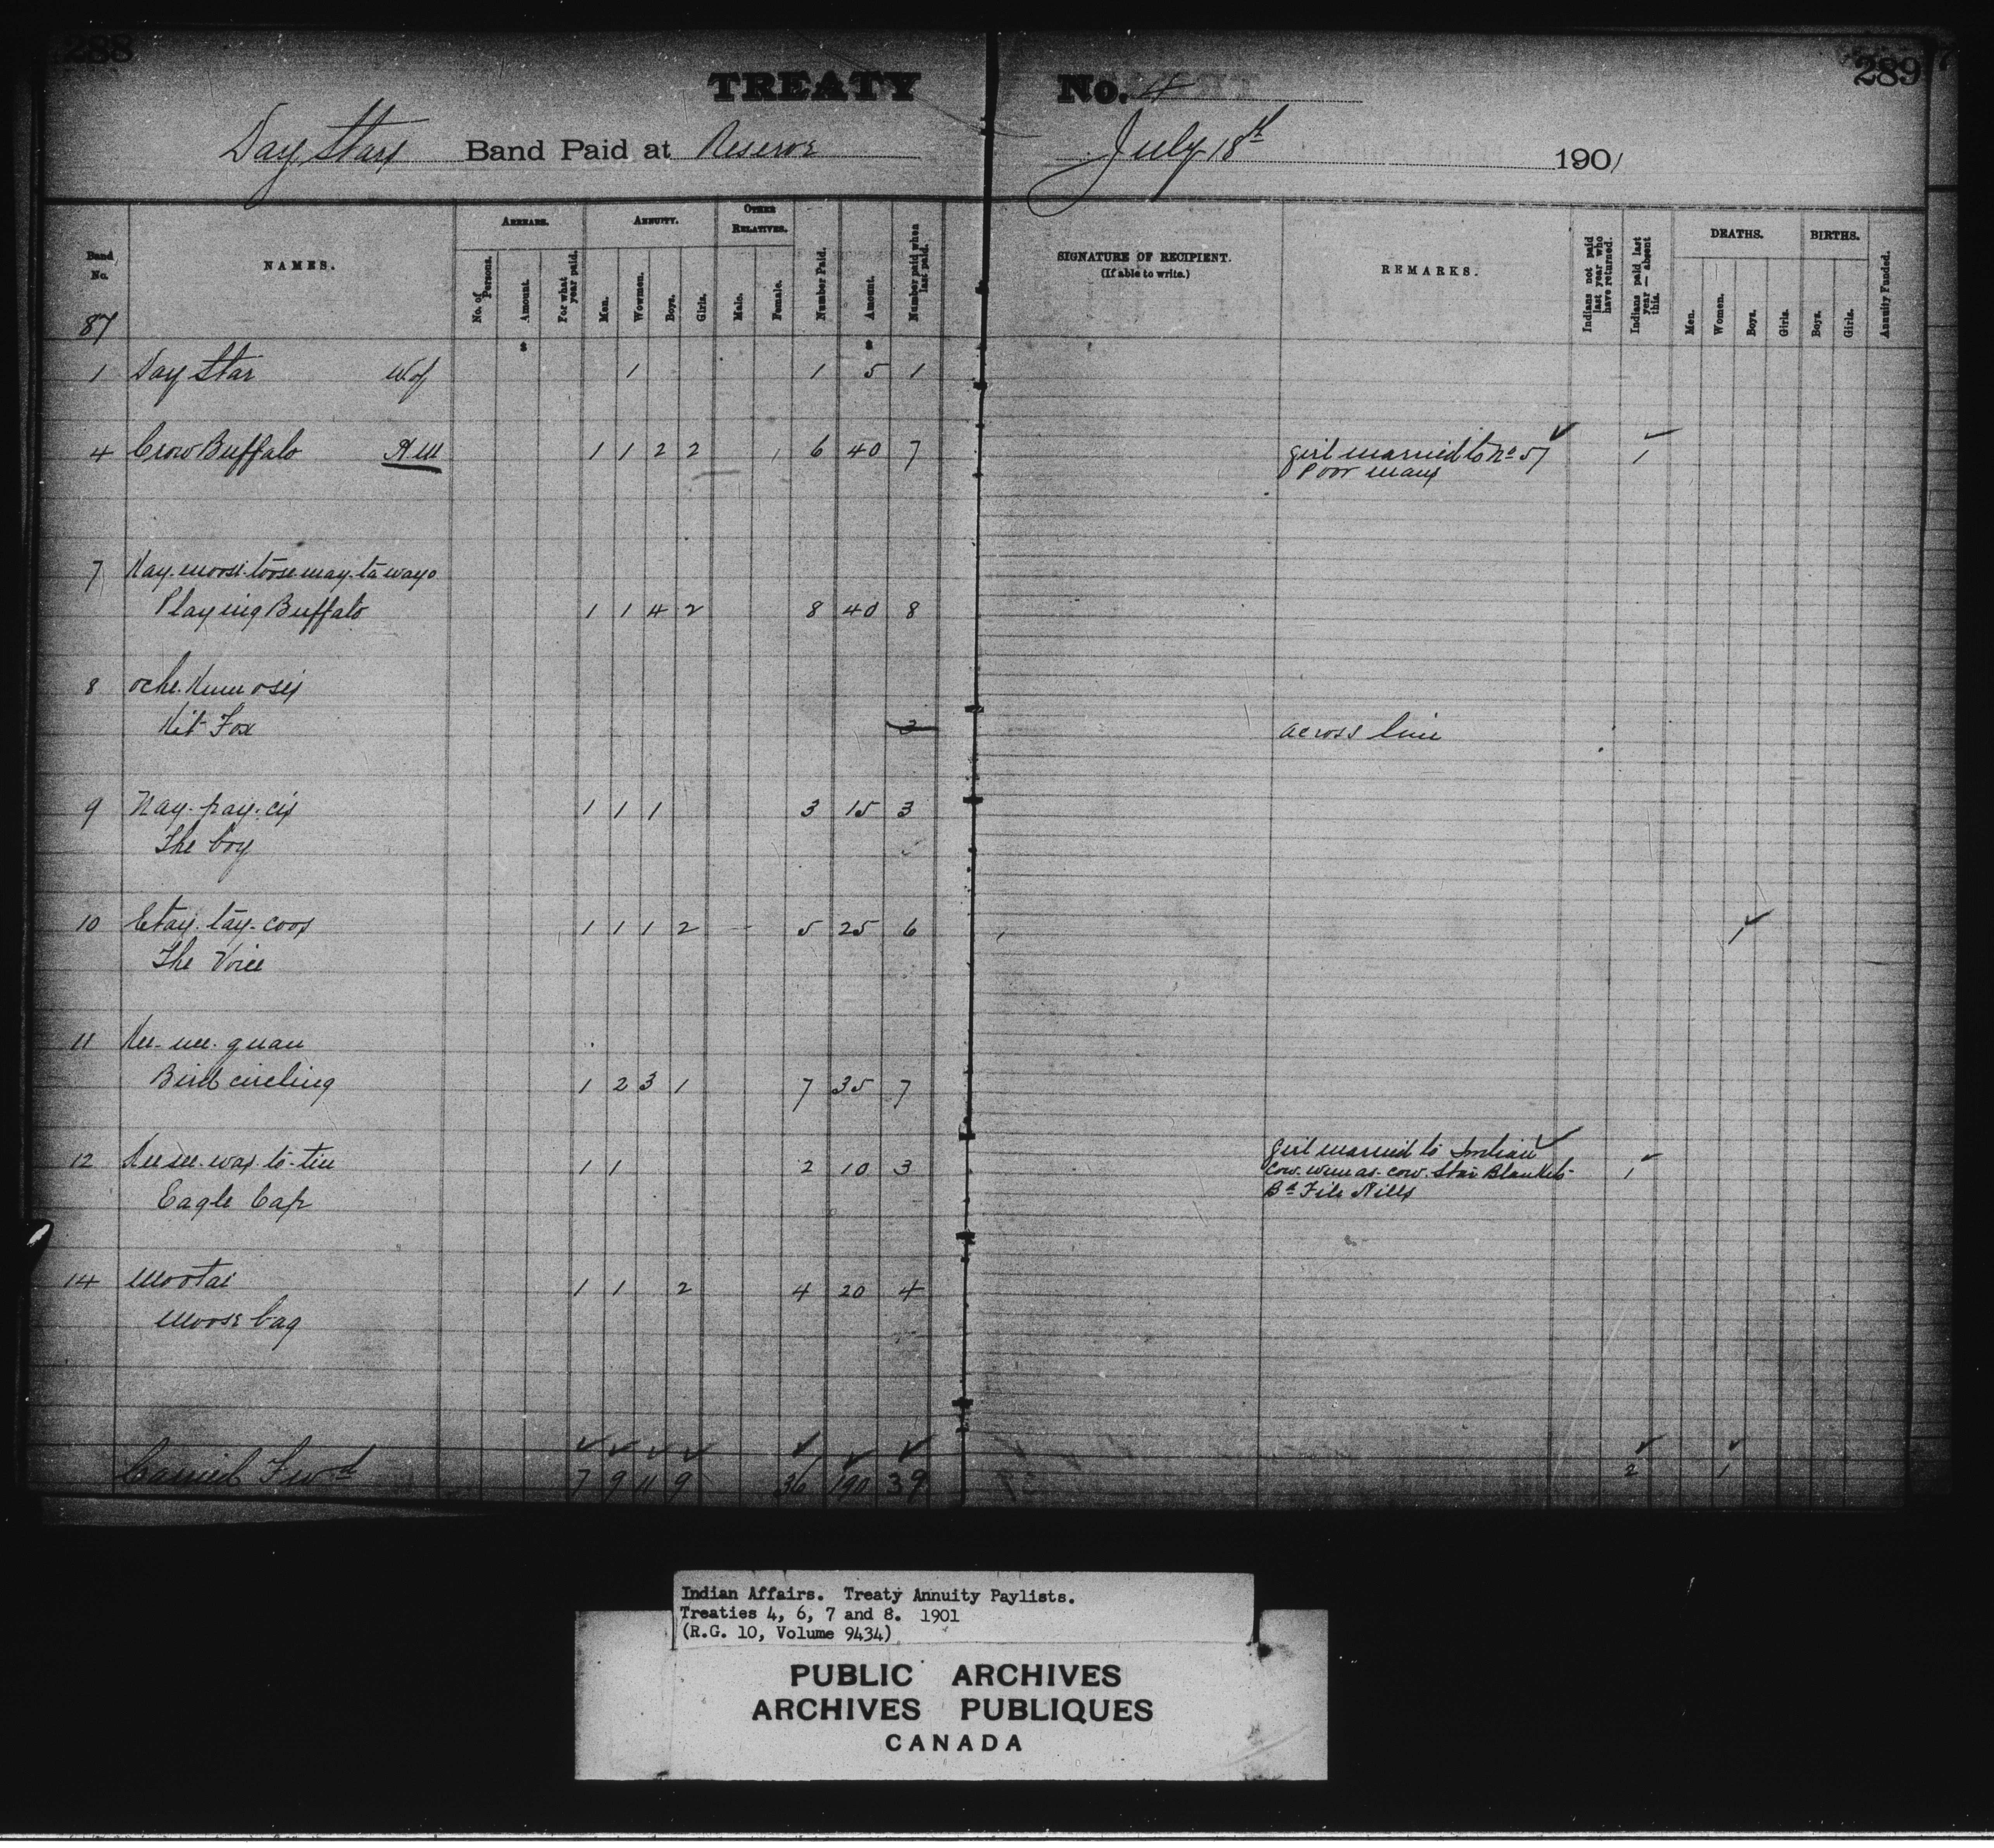 288
289
TREATY No. 4
Day Stars Band Paid at Reserve July 18th 1901
Band No.
NAMES.
ARREARS.
No. of Persons.
Amount.
For what year paid.
ANNUITY.
Men.
Wowmen.
Boys.
Girls.
OTHER RELATIVES.
Male.
Female.
Number Paid.
Amount.
Number paid when last paid.
SIGNATURE OF RECIPIENT.
(If able to write.)
REMARKS.
Indians not paid last year who have returned.
Indians paid last year — absent this.
DEATHS.
Men.
Women.
Boys.
Girls.
BIRTHS.
Boys.
Girls.
Annuity Funded.
87
$ $
1 Day Star W of 1 1 5 1
4 Crow Buffalo H.M 1 1 2 2 6 40 7 girl married to No 57 1
Poor mans
7 Kay-moose-toose-may-ta-wayo
Playing Buffalo 1 1 4 2 8 40 8
8
Kit Fox 3 across line
9 Nay-pay-cis 1 1 1 3 15 3
The boy
10 Etay-tay-coos 1 1 1 2 5 25 6 1
The Voice
11 Kee-nee-quan
Bird circling 1 2 3 1 7 35 7
12 1 1 2 10 3 girl married to Indian 1
Star Blankets
Bd File Hills
Eagle Cap
14 Mootai 1 1 2 4 20 4
Moose bag
Carried Fwd 7 9 11 9 36 190 39 2 1
Indian Affairs. Treaty Annuity Paylists.
Treaties 4, 6, 7 and 8. 1901
(R.G. 10, Volume 9434)
PUBLIC ARCHIVES
ARCHIVES PUBLIQUES
CANADA